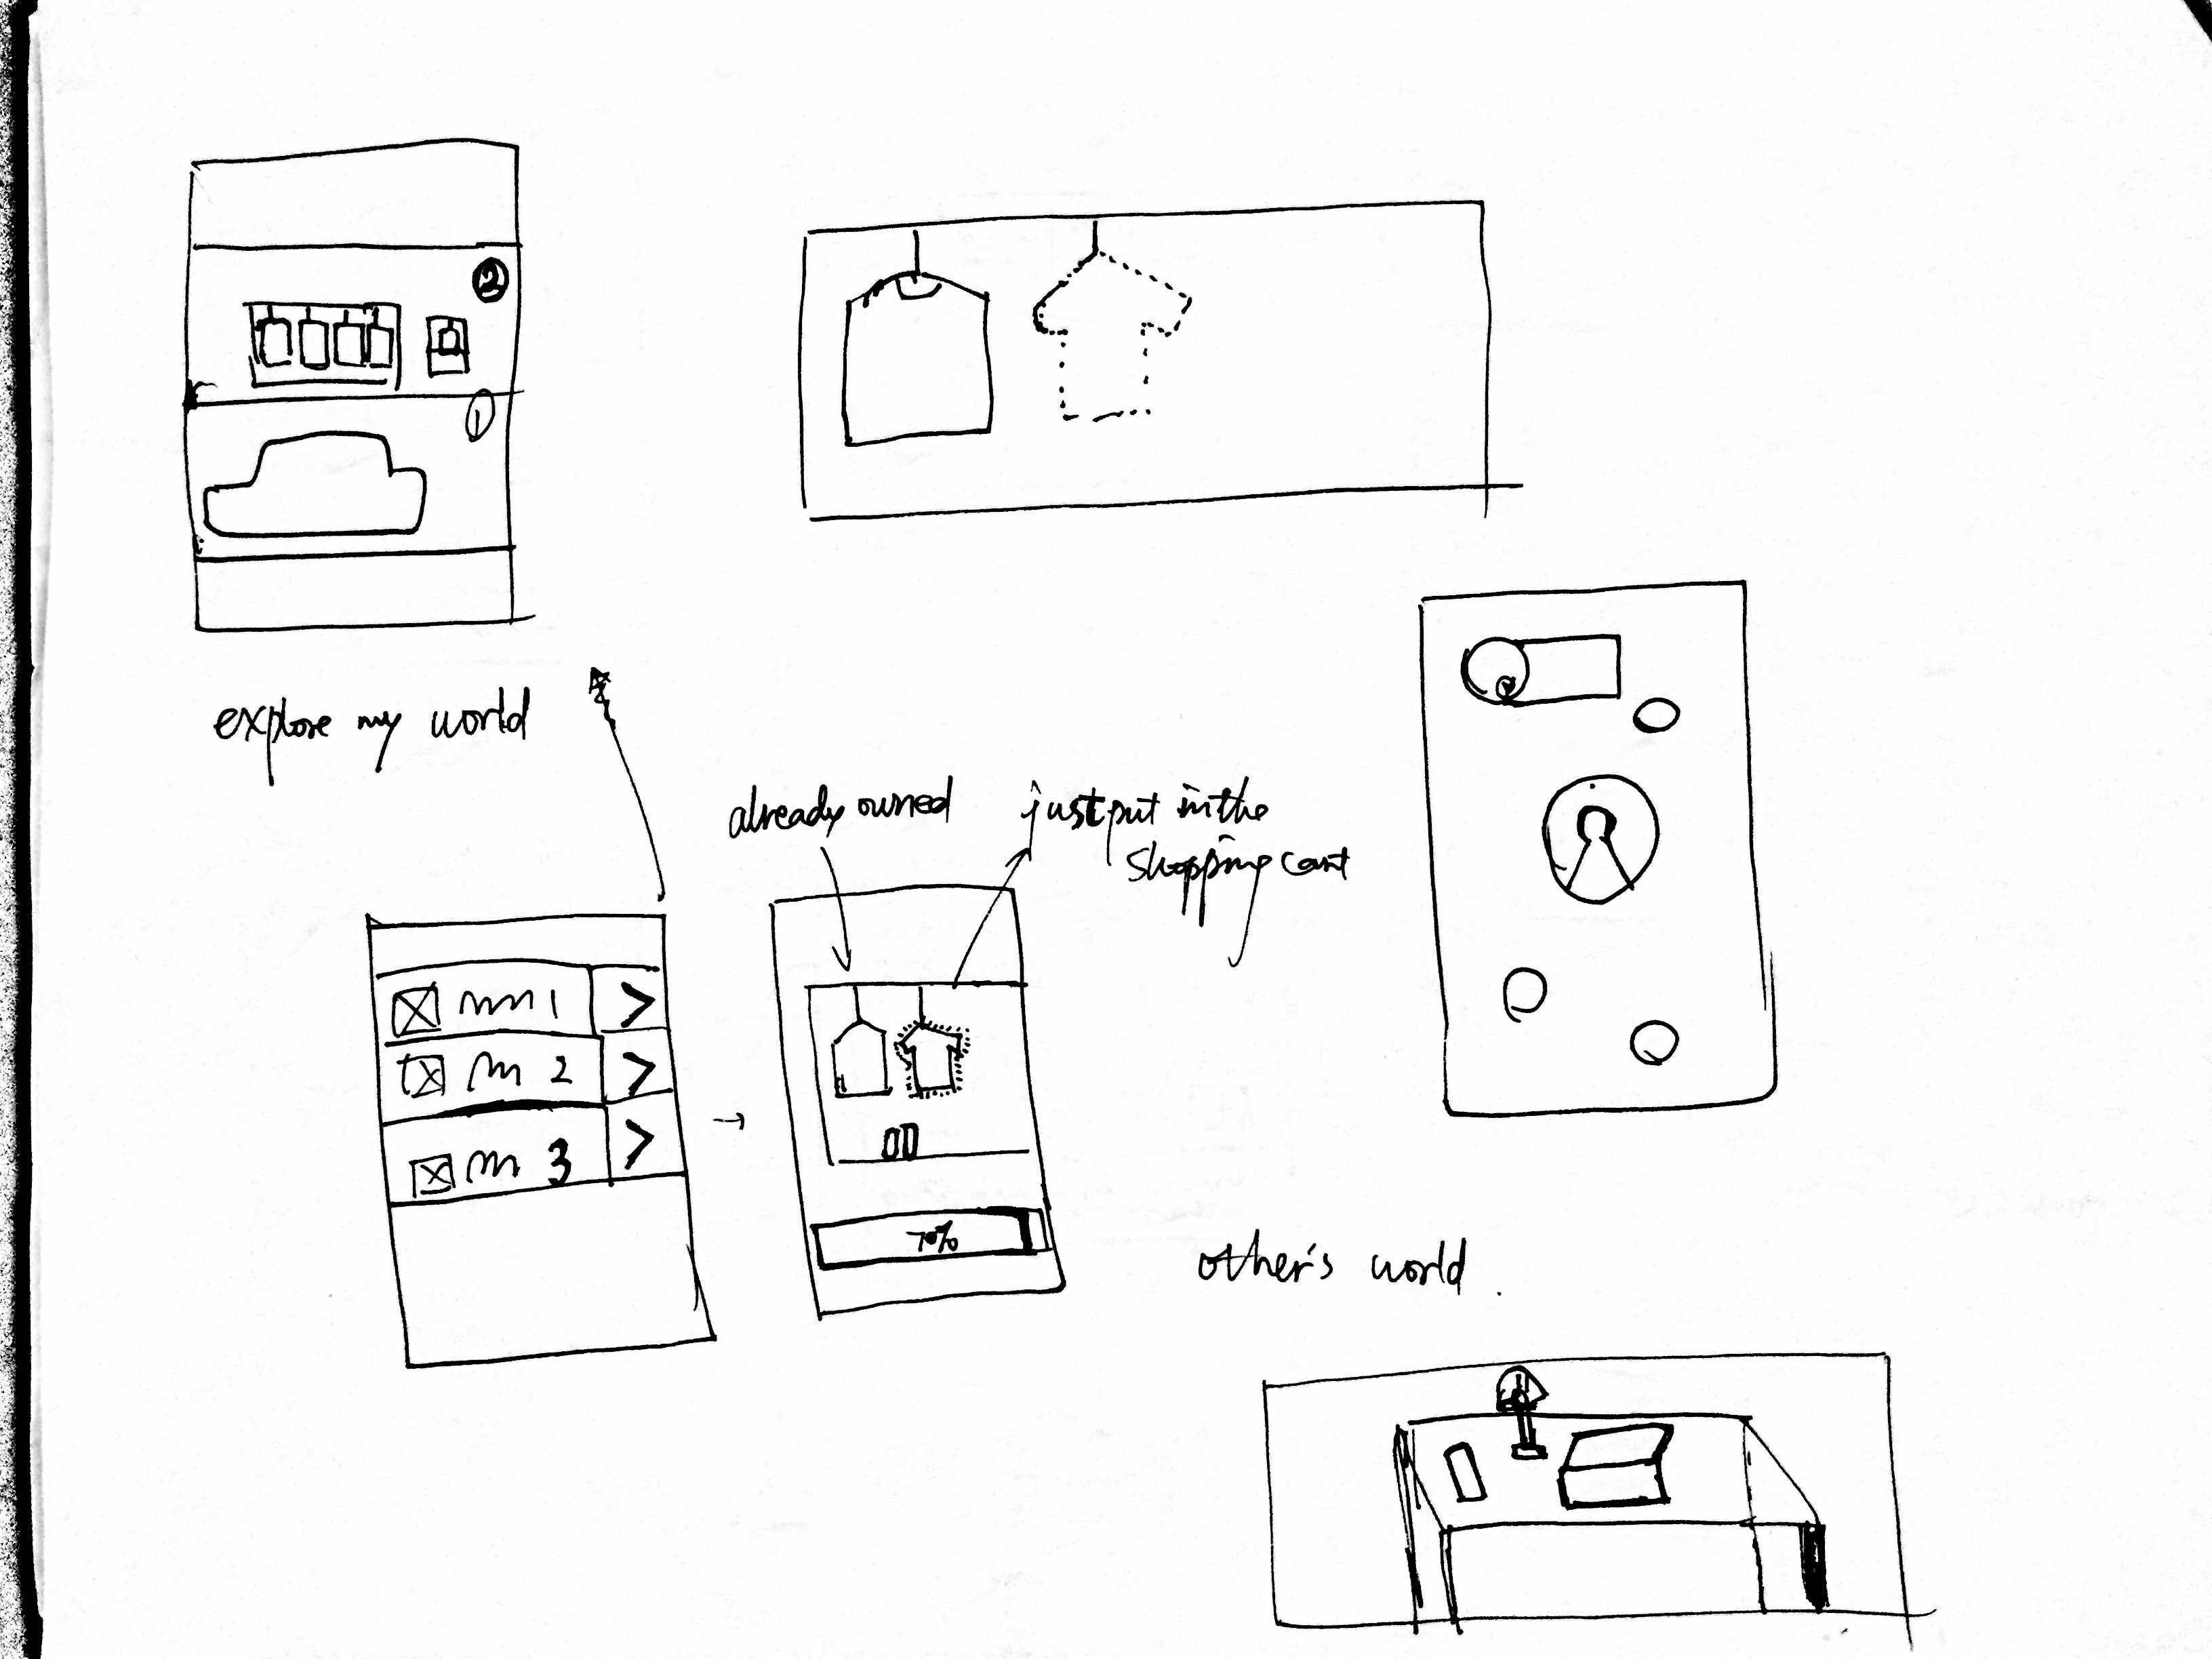 ②
①
explore my world
already owned
just put in the
shopping cart
1
2
3
70%
other's world.